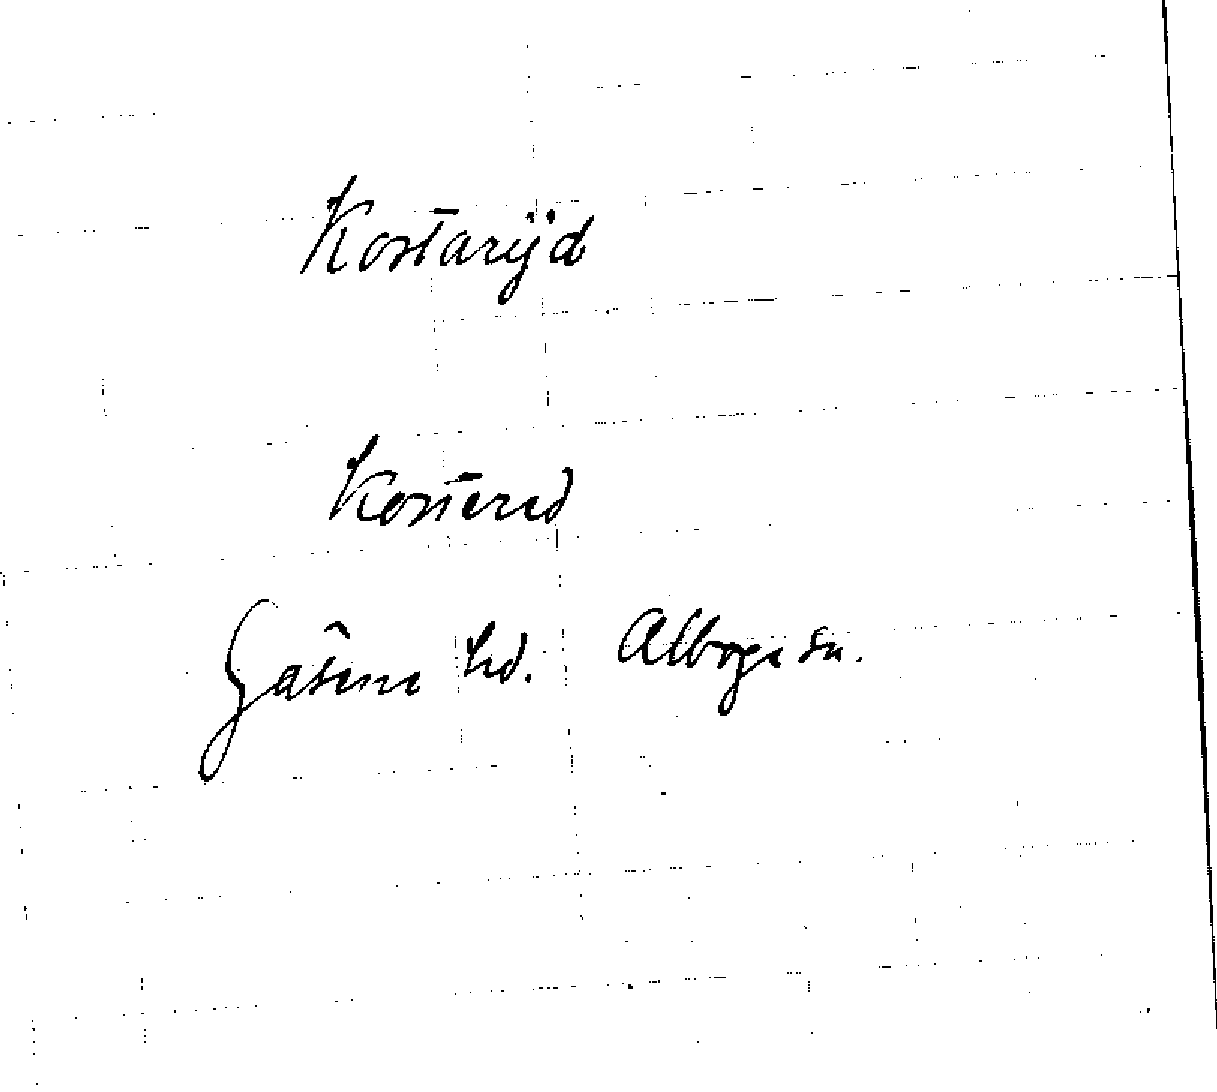 Kostarÿd
Kostered
Gåsene hd. Alboga sn.